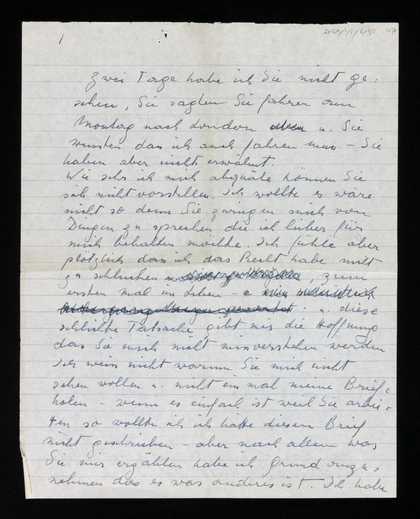 1
zwei Tage habe ich Sie nicht ge-
sehen, Sie sagten Sie fahren am
Montag nach London u. Sie
wussten das ich auch fahren muss – Sie
haben aber nicht erwähnt.
Wie sehr ich mich abquäle können Sie
sich nicht vorstellen. Ich wollte es wäre
nicht so denn Sie zwingen mich von
Dingen zu sprechen die ich lieber für
mich behalten möchte. Ich fühle aber
plötzlich das ich das Recht habe mit
zu, zum
ersten mal im Leben
u. diese
schlichte Tatsache gibt mir die Hoffnung
das Sie mich nicht missverstehen werden
Ich weiss nicht warum Sie mich nicht
sehen wollen u. nicht ein mal meine Briefe
holen – wenn es einfach ist weil Sie arbei-
ten so wollte ich ich hätte diesen Brief
nicht geschrieben – aber nach allem was
Sie mir erzählten habe ich Grund anzu-
nehmen das es was anderes ist. Ich habe